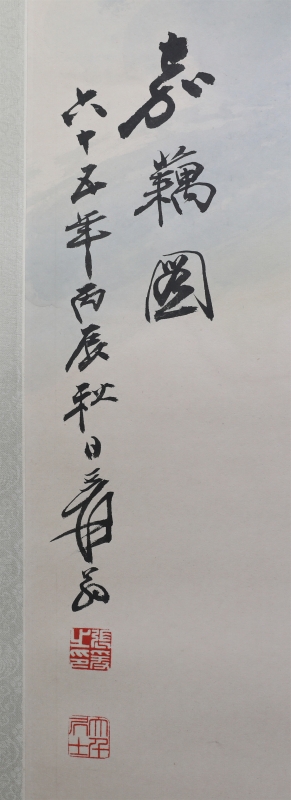 嘉藕圖
六十五年丙辰秋日爰翁
張爰之印
大千居士